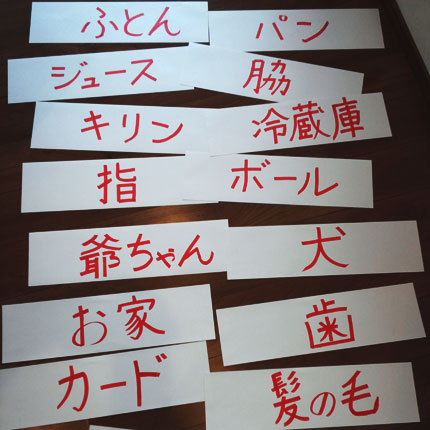 ふとん
パン
ジュース
脇
キリン
冷蔵庫
指
ボール
爺ちゃん
犬
お家
歯
カード
髪の毛